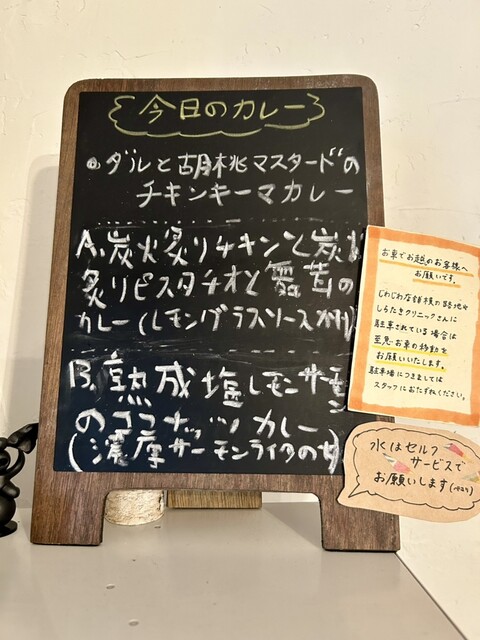 今日のカレー
◎ダルと胡桃マスタードの
チキンキーマカレー
A.炭火炙りチキンと炭
炙りピスタチオと舞茸の
カレー(レモングラスソース
B.熟成塩レモンサーモン
のココナッツカレー
(濃厚サーモンライタの
お車でお越しのお客様へ
お願いです。
じわじわ店舗横の路地や
しらたきクリニックさんに
駐車されている場合は
至急お車の移動を
お願いいたします。
駐車場につきましては
スタッフにおたずねください。
水はセルフ
サービスで
お願いします